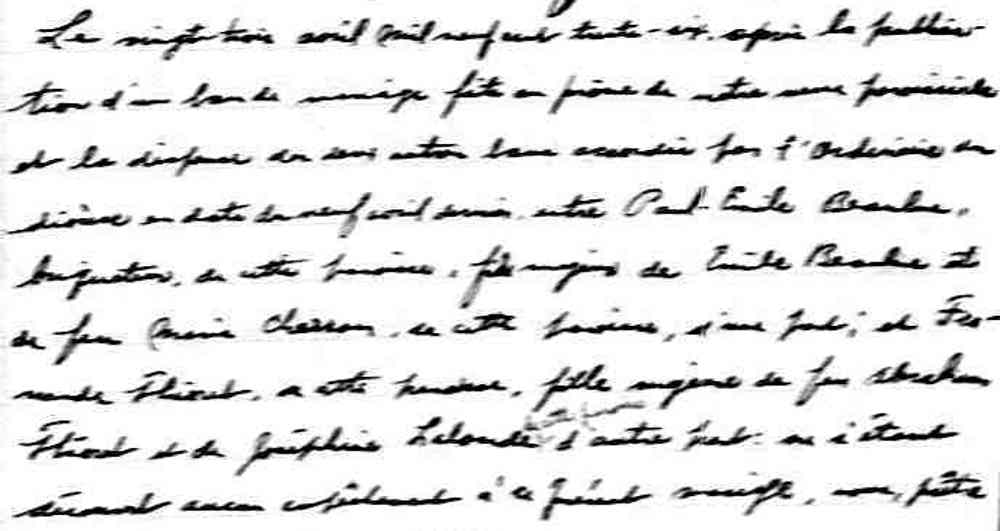 Le vingt-trois avril mil neuf cent trente-six, après la publica-
tion d'un ban de mariage faite au prône de notre messe paroissiale
et la dispense des deux autres bans accordée par l'Ordinaire du
diocèse en date du neuf avril dernier, entre Paul-Emile Beaulne,
, de cette paroisse, fils majeur de Emile Beaulne et
de feu Marie Charron, de cette paroisse, d'une part; et Fer-
nande Thivert, de cette paroisse, fille majeure de feu Abraham
Thivert et de Joséphine Lalonde de cette paroisse d'autre part: ne s'étant
découvert aucun empêchement à ce présent mariage, nous, prêtre